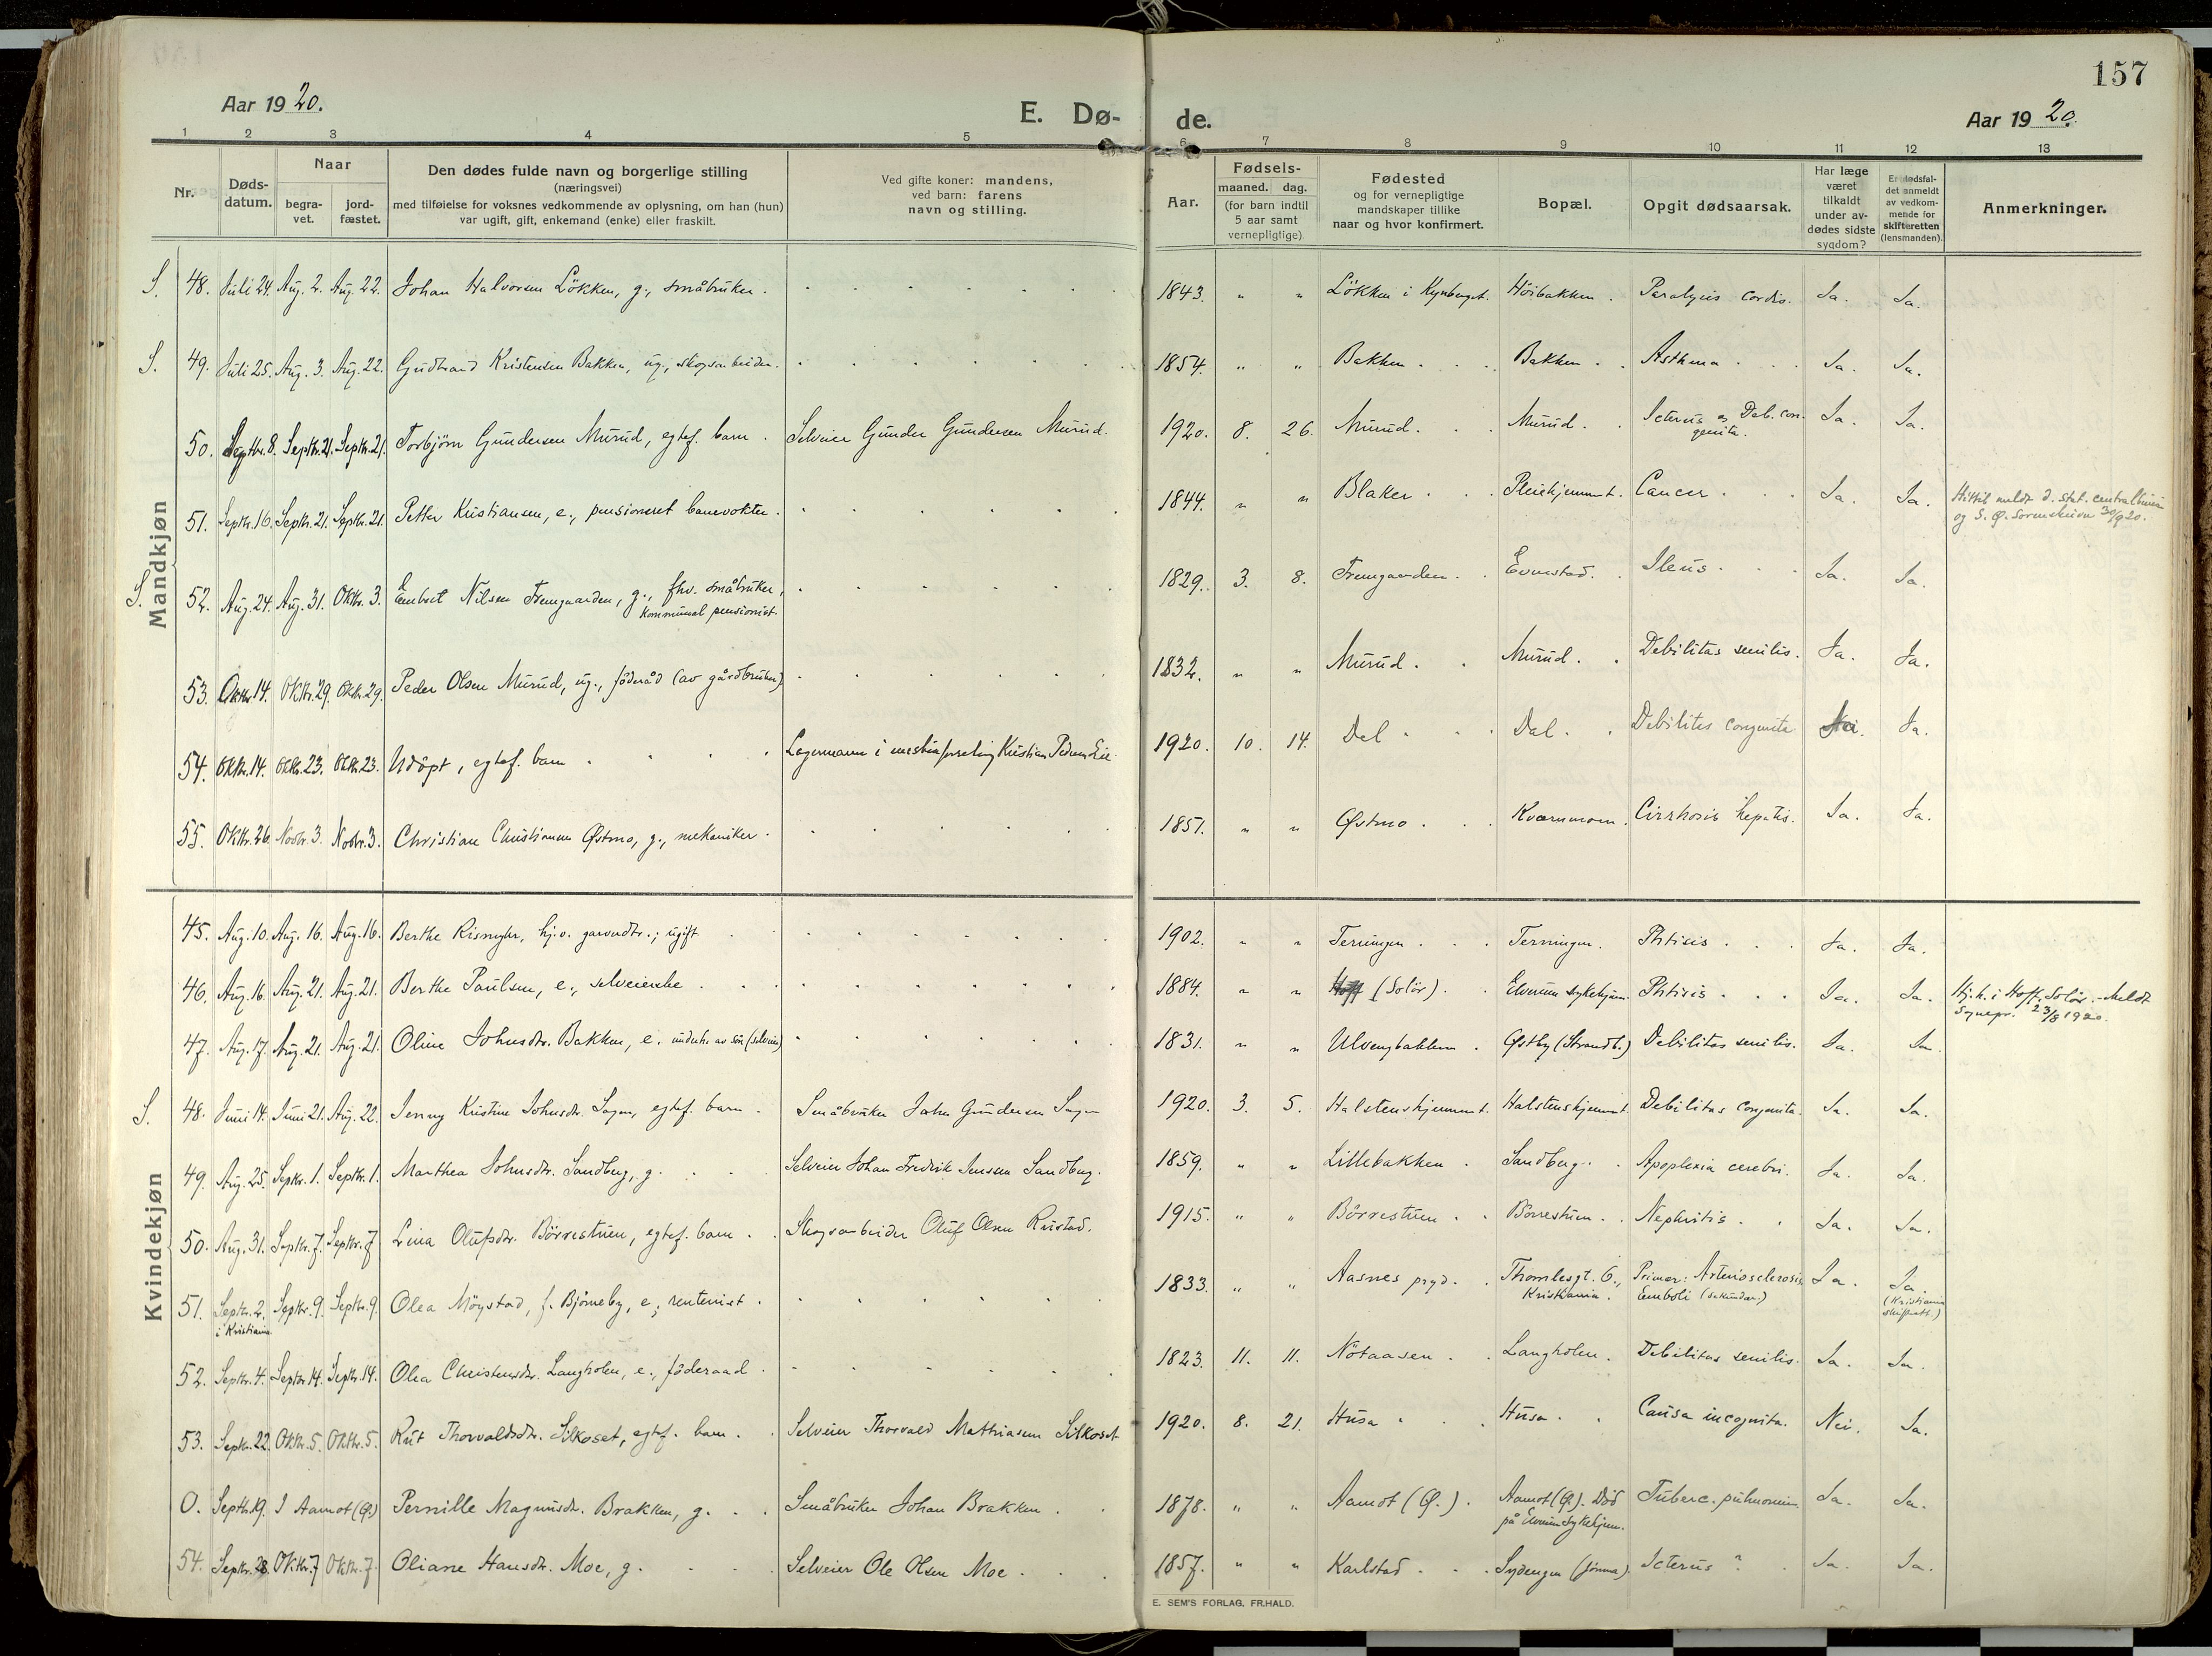 157
Aar 1920.
E. Dø-
de.
Aar 1920.
1 2 3 4 5 6 7 8 9 10 11 12 13
Nr.
Døds-
datum.
Naar
begra-
vet.
jord-
fæstet.
Den dødes fulde navn og borgerlige stilling
(næringsvei)
med tilføielse for voksnes vedkommende av oplysning, om han (hun)
var ugift, gift, enkemand (enke) eller fraskilt.
Ved gifte koner: mandens,
ved barn: farens
navn og stilling.
Aar.
Fødsels-
maaned. dag.
(for barn indtil
5 aar samt
vernepligtige).
Fødested
og for vernepligtige
mandskaper tillike
naar og hvor konfirmert.
Bopæl.
Opgit dødsaarsak.
Har læge
været
tilkaldt
under av-
dødes sidste
sygdom?
Er dødsfal-
det anmeldt
av vedkom-
mende for
skifteretten
(lensmanden).
Anmerkninger.
Mandkjøn
S. 48. Juli 24. Aug. 2. Aug. 22. Johan Halvorsen Løkken, g., småbruker. 1843. " " Løkken i Kynberget. Høibakken. Paralysis cordis. Ja. Ja.
S. 49. Juli 25. Aug. 3. Aug. 22. Gudbrand Kristensen Bakken, ug., skogsarbeider. 1854. " " Bakken. Bakken. Asthma. Ja. Ja.
50. Septbr. 8. Septbr. 21. Septbr. 21. Torbjørn Gundersen Murud, egtef. barn. Selveier Gunder Gundersen Murud. 1920. 8. 26. Murud. Murud. Icterus og Deb. con-
genita. Ja. Ja.
51. Septbr. 16. Septbr. 21. Septbr. 21. Petter Kristiansen, e., pensioneret banevokter. 1844. " " Blaker. Pleiehjemmet. Cancer. Ja. Ja. meldt d. stat. centralbureau
og S. Ø. Sorenskriver 30/9 20.
S. 52. Aug. 24. Aug. 31. Oktbr. 3. Embret Nilsen Fremgaarden, g., fhv. småbruker,
kommunal pensionist. 1829. 3. 8. Fremgaarden. Evenstad. Ileus. Ja. Ja.
53. Oktbr. 14. Oktbr. 29. Oktbr. 29. Peder Olsen Murud, ug., føderåd (av gårdbruker). 1832. " " Murud. Murud. Debilitas senilis. Ja. Ja.
54. Oktbr. 14. Oktbr. 23. Oktbr. 23. Udøpt, egtef. barn. Lagermann i Kristian Pedersen Lie 1920. 10. 14. Dal. Dal. Debilitas congenita Ja.
55. Oktbr. 26. Novbr. 3. Novbr. 3. Christian Christiansen Østmo, g., mekaniker. 1851. " " Østmo. Kvernmoen. Cirrhosis hepatis. Ja. Ja.
Kvindekjøn
45. Aug. 10. Aug. 16. Aug. 16. Berthe ugift 1902. " " Terningen. Terningen. Phtisis. Ja. Ja.
46. Aug. 16. Aug. 21. Aug. 21. Berthe Paulsen, e., selveierske. 1884. " " Hoff (Solør). Elverum sykehjem. Phtisis. Ja. Ja. Hj.h. i Hoff, Solør. - Meldt
Sognepr. 23/8 1920.
47. Aug. 17. Aug. 21. Aug. 21. Oline Johnsdtr. Bakken, e. underh. av søn (selveier) 1831. " " Ulvengbakken. Østby (Strandb.) Debilitas senilis. Ja. Ja.
S. 48. Juni 14. Juni 21. Aug. 22. Jenny Kristine Johnsdtr. Sagen, egtef. barn. Småbruker John Gundersen Sagen 1920. 3. 5. Halstenshjemmet. Halstenshjemmet. Debilitas congenita. Ja. Ja.
49. Aug. 25. Septbr. 1. Septbr. 1. Marthea Johnsdtr. Sandberg, g. Selveier Johan Fredrik Jensen Sandberg. 1859. " " Lillebakken. Sandberg. Apoplexia cerebri. Ja. Ja.
50. Aug. 31. Septbr. 7. Septbr. 7. Lina Olufsdtr. Børrestuen, egtef. barn. Skogsarbeider Oluf Olsen Rustad. 1915. " " Børrestuen. Børrestuen. Nephritis. Ja. Ja.
51. Septbr. 2.
i Kristiania Septbr. 9. Septbr. 9. Olea Møystad, f. Bjørneby, e., rentenist. 1833. " " Aasnes prgd. Thomlesgt. 6.,
Kristiania. Primær: Arteriosclerosis
Emboli (sekundær.) Ja. Ja.
(Kristiania
skifterett)
52. Septbr. 4. Septbr. 14. Septbr. 14. Olea Christensdtr. Langholen, e., føderaad. 1823. 11. 11. Nötaasen. Langholen. Debilitas senilis. Ja. Ja.
53. Septbr. 22. Oktbr. 5. Oktbr. 5. Rut Thorvaldsdtr. Silkoset, egtef. barn. Selveier Thorvald Mathiasen Silkoset 1920. 8. 21. Husa. Husa. Causa incognita. Nei. Ja.
0. Septbr. 19. I Aamot (Ø.) Pernille Magnusdtr. Brakken, g. Småbruker Johan Brakken. 1878. " " Aamot (Ø.). Aamot (Ø.). Død
på Elverum Sykehjem. Tuberc. pulmonum. Ja. Ja.
54. Septbr. 28. Oktbr. 7 Oktbr. 7. Oliane Hansdtr. Moe, g. Selveier Ole Olsen Moe. 1857. " " Karlstad. Sydengen (Jømna). Icterus ? Ja. Ja.
E. SEM'S FORLAG. FR.HALD.